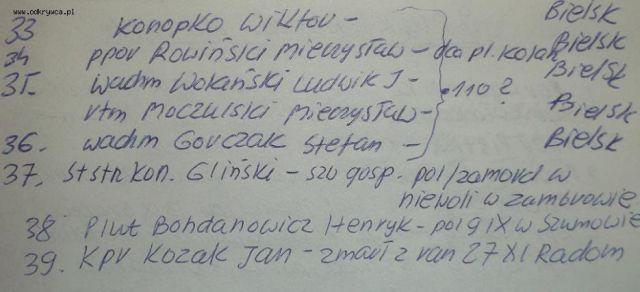 www.odkrywca.pl
33 Konopko Wiktor - Bielsk
34 ppor Rowiński Mieczysław - dca pl. kolarz Bielsk
35. wachm Wołański Ludwik J - Bielsk
110 ?
rtm Moczulski Mieczysław - Bielsk
36. wachm Gorczak Stefan - Bielsk
37. st str kon. Gliński - szo gosp. pol/zamord w
niewoli w Zambrowie
38 Plut Bohdanowicz Henryk - pol 9 IX w Szumowie
39. Kpr Kozak Jan - zmarł z ran 27 XI Radom